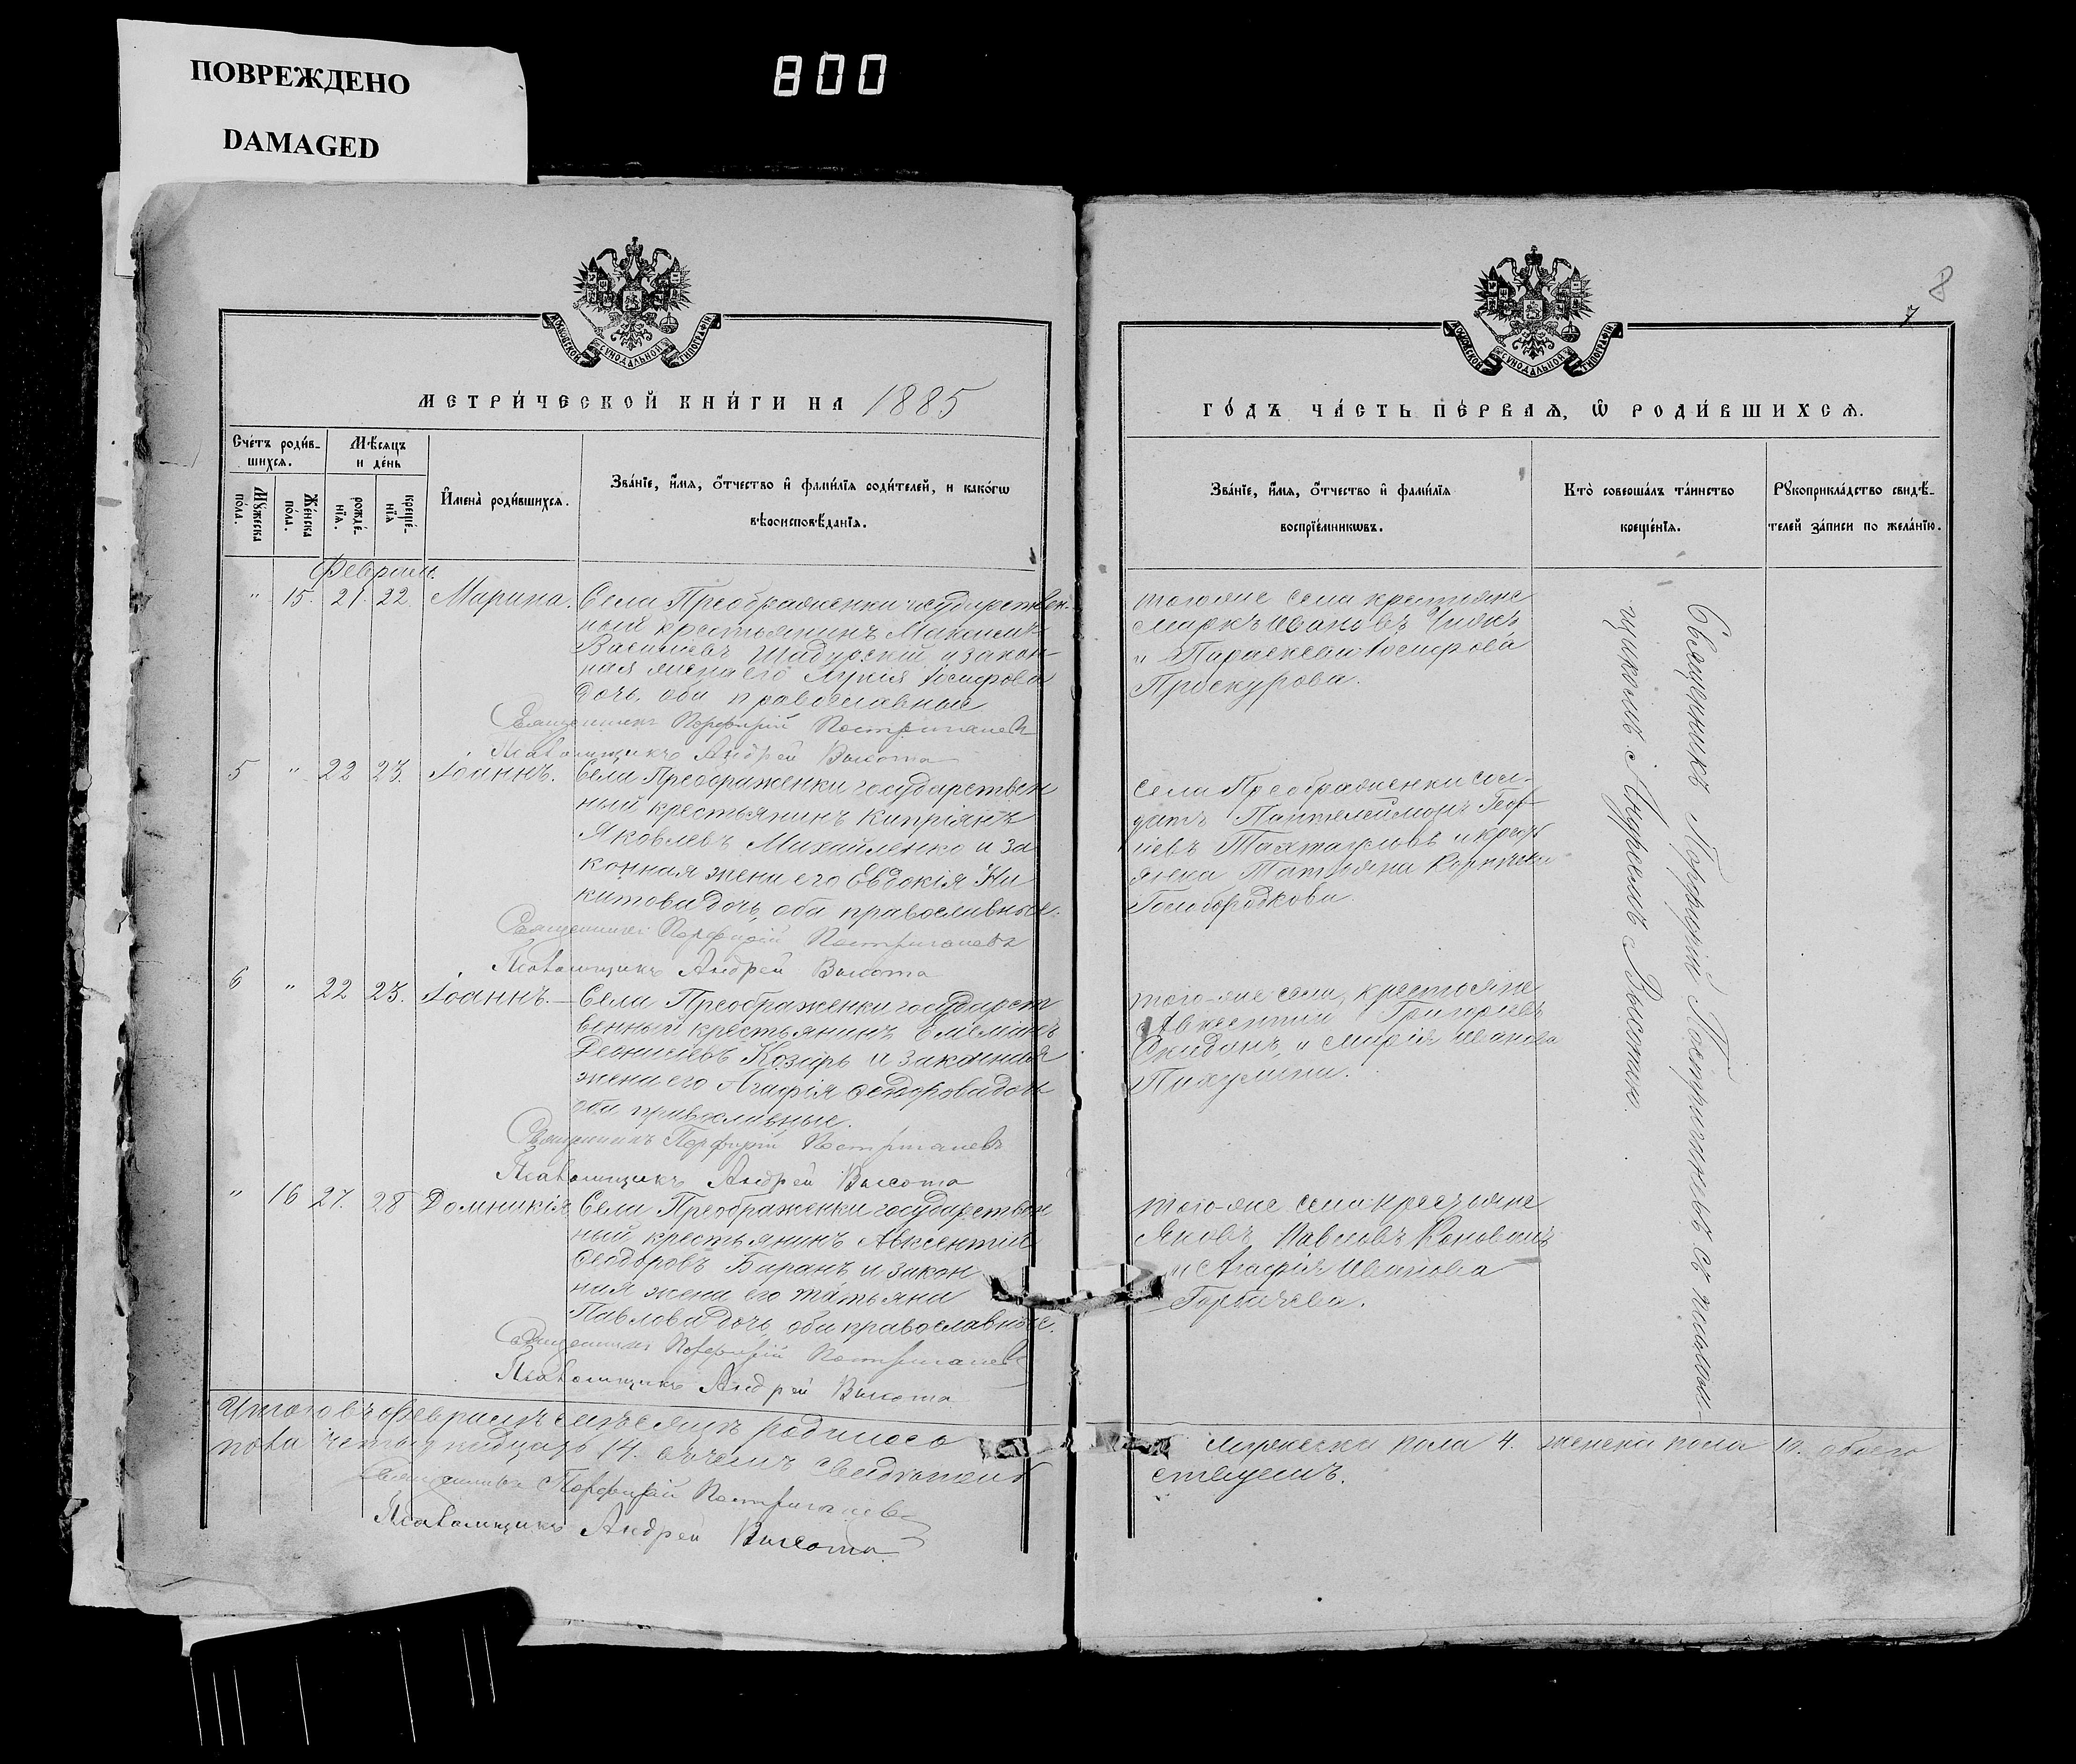 ПОВРЕЖДЕНО
DAMAGED
800
МОСКОВСКОЙ СѴНОДАЛЬНОЙ ТИПОГРАФІИ
МЕТРИ́ЧЕСКОЙ КНИ́ГИ НА 1885
Сче́тъ роди́в-
шихсѧ.
Мѣ́сяцъ
и де́нь
Мꙋ́жеска
по́ла.
Же́нска
по́ла.
рожде́-
нїѧ.
креще́-
нїѧ
И҆мена̀ роди́вшихсѧ.
Зва́нїе, и҆́мѧ, ѻ҆́тчество и҆ фами́лїѧ роди́телей, и како́гѡ
вѣроисповѣ́данїѧ.
Февраль.
" 15. 21. 22. Марина.
Села Преображенки государствен-
ный крестьянинъ Максимъ
Васильевъ Шадурскій и закон-
ная жена его Лукія Іосифова
дочь, оба православные
Священникъ Порфирій Постригачевъ
Псаломщикъ Андрей Высота
5 " 22 23. Іоаннъ.
Села Преображенки государствен
ный крестьянинъ Кипріянъ
Яковлевъ Михайленко и за
конная жена его Евдокія Ни
китова дочь, оба православные.
Священникъ Порфирій Постригачевъ
Псаломщикъ Андрей Высота
6 " 22 23. Іоаннъ.
Села Преображенки государст
венный крестьянинъ Емеліянъ
Деонисіевъ Козырь и законная
жена его Агафія Ѳедорова дочь
оба православные.
Священникъ Порфирій Постригачевъ
Псаломщикъ Андрей Высота
" 16 27. 28 Домникія
Села Преображенки государствен
ный крестьянинъ Авксентій
Ѳеодоровъ Баранъ и закон
ная жена его Татьяна
Павлова дочь, оба православные.
Священникъ Порфирій Постригачевъ
Псаломщикъ Андрей Высота
Итого въ Февралѣ мѣсяцѣ родилось
пола четырнадцать 14. въ чемъ свидѣтель
Священникъ Порфирій Постригачевъ
Псаломщикъ Андрей Высота
8
7
МОСКОВСКОЙ СѴНОДАЛЬНОЙ ТИПОГРАФІИ
ГО́ДЪ ЧА́СТЬ ПЕ́РВАѦ, Ѽ РОДИ́ВШИХСѦ.
Зва́нїе, и҆́мѧ, ѻ҆́тчество и҆ фами́лїѧ
воспрїе́мникѡвъ.
Кто̀ соверша́лъ та́инство
креще́нїѧ.
Рꙋкоприкла́дство свидѣ́-
телей за́писи по жела́нїю.
того-же села крестьяне
Маркъ Ивановъ
и Параскева Іосифова
Проскурова.
Села Преображенки сол-
датъ Пантелеймонъ Геор-
гіевъ и кресть
янка Татьяна
Голобородкова.
того-же села, крестьяне
Авксентій Григорьевъ
и Марія Иванова
того-же села крестьяне
Яковъ Павловъ Коновалъ
и Агафія Иванова
Горбачева.
Священникъ Порфирій Постригачевъ съ псалом-
щикомъ Андреемъ Высотою.
Мужеска пола 4. женска пола 10. обоего
ствуемъ.